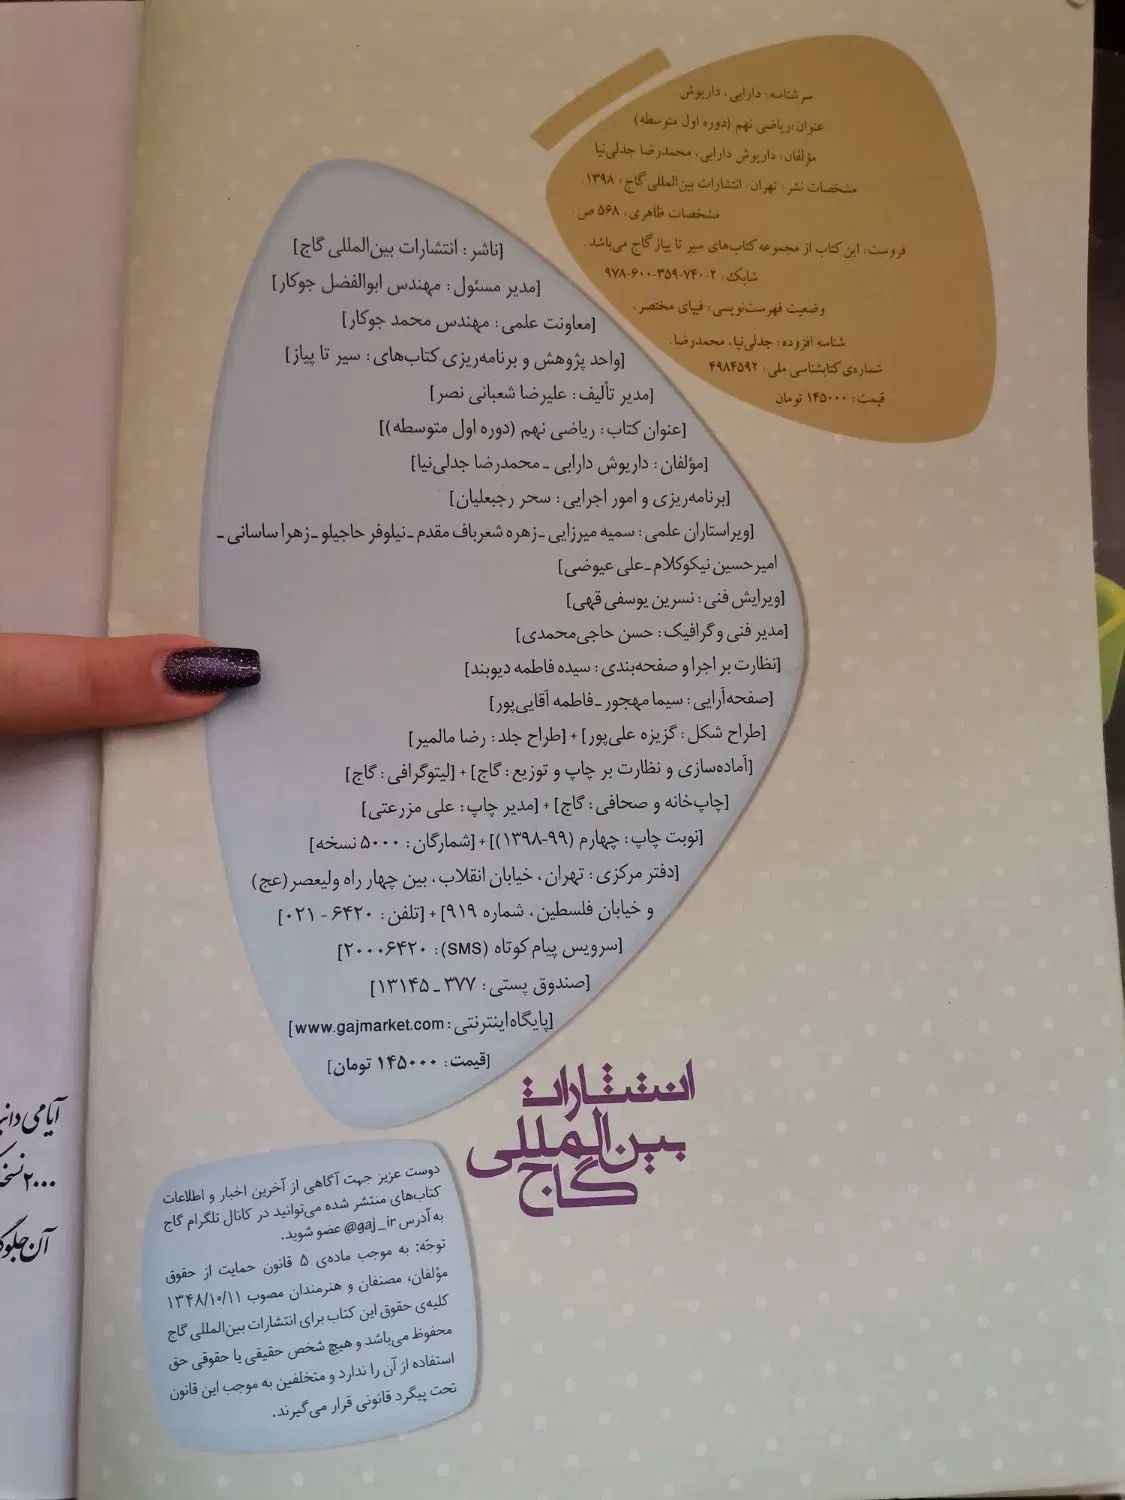 سرشناسه: دارابی، داریوش
عنوان: ریاضی نهم (دوره اول متوسطه)
مؤلفان: داریوش دارابی، محمدرضا جدلی‌نیا
مشخصات نشر: تهران: انتشارات بین‌المللی گاج؛ ۱۳۹۸.
مشخصات ظاهری: ۵۶۸ ص.
فروست: این کتاب از مجموعه کتاب‌های سیر تا پیاز گاج می‌باشد.
شابک: ۲-۷۴۰-۳۵۹-۶۰۰-۹۷۸
وضعیت فهرست‌نویسی: فیپای مختصر.
شناسه افزوده: جدلی‌نیا، محمدرضا.
شماره‌ی کتابشناسی ملی: ۴۹۸۴۵۹۲
قیمت: ۱۴۵۰۰۰ تومان
[ناشر: انتشارات بین‌المللی گاج]
[مدیر مسئول: مهندس ابوالفضل جوکار]
[معاونت علمی: مهندس محمد جوکار]
[واحد پژوهش و برنامه‌ریزی کتاب‌های: سیر تا پیاز]
[مدیر تألیف: علیرضا شعبانی نصر]
[عنوان کتاب: ریاضی نهم (دوره اول متوسطه)]
[مؤلفان: داریوش دارابی ـ محمدرضا جدلی‌نیا]
[برنامه‌ریزی و امور اجرایی: سحر رجبعلیان]
[ویراستاران علمی: سمیه میرزایی ـ زهره شعرباف مقدم ـ نیلوفر حاجیلو ـ زهرا ساسانی ـ
امیرحسین نیکوکلام ـ علی عیوضی]
[ویرایش فنی: نسرین یوسفی قهی]
[مدیر فنی و گرافیک: حسن حاجی‌محمدی]
[نظارت بر اجرا و صفحه‌بندی: سیده فاطمه دیوبند]
[صفحه‌آرایی: سیما مهجور ـ فاطمه آقایی‌پور]
[طراح شکل: گزیزه علی‌پور] + [طراح جلد: رضا مالمیر]
[آماده‌سازی و نظارت بر چاپ و توزیع: گاج] + [لیتوگرافی: گاج]
[چاپ‌خانه و صحافی: گاج] + [مدیر چاپ: علی مزرعتی]
[نوبت چاپ: چهارم (۹۹-۱۳۹۸)] + [شمارگان: ۵۰۰۰ نسخه]
[دفتر مرکزی: تهران، خیابان انقلاب، بین چهار راه ولیعصر (عج)
و خیابان فلسطین، شماره ۹۱۹] + [تلفن: ۶۴۲۰ - ۰۲۱]
[سرویس پیام کوتاه (SMS): ۲۰۰۰۶۴۲۰]
[صندوق پستی: ۳۷۷ ـ ۱۳۱۴۵]
[پایگاه اینترنتی: www.gajmarket.com]
[قیمت: ۱۴۵۰۰۰ تومان]
انتشارات
بین‌المللی
گاج
دوست عزیز جهت آگاهی از آخرین اخبار و اطلاعات
کتاب‌های منتشر شده می‌توانید در کانال تلگرام گاج
به آدرس @gaj_ir عضو شوید.
توجّه: به موجب ماده‌ی ۵ قانون حمایت از حقوق
مؤلفان، مصنفان و هنرمندان مصوب ۱۳۴۸/۱۰/۱۱
کلیه‌ی حقوق این کتاب برای انتشارات بین‌المللی گاج
محفوظ می‌باشد و هیچ شخص حقیقی یا حقوقی حق
استفاده از آن را ندارد و متخلفین به موجب این قانون
تحت پیگرد قانونی قرار می‌گیرند.
آیا می
آن